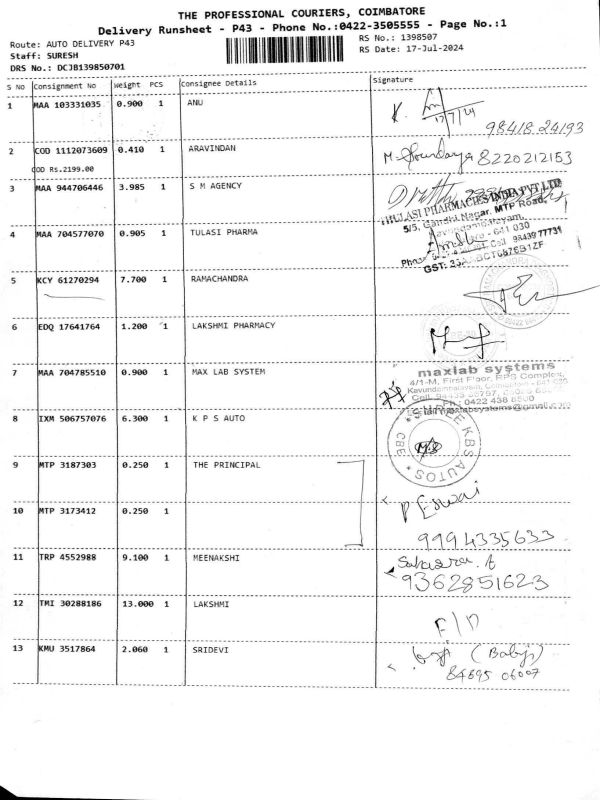 THE PROFESSIONAL COURIERS, COIMBATORE
Delivery Runsheet - P43 - Phone No.:0422-3505555 - Page No.:1
Route: AUTO DELIVERY P43
RS No.: 1398507
Staff: SURESH
RS Date: 17-Jul-2024
DRS No.: DCJB139850701
S NO Consignment No Weight PCS Consignee Details Signature
1 MAA 103331035 0.900 1 ANU
K.
17/7/24
98418.24193
2 COD 1112073609 0.410 1 ARAVINDAN
COD Rs.2199.00
8220212153
3 MAA 944706446 3.985 1 S M AGENCY
THULASI PHARMACIES INDIA PVT LTD
5/5, Gandhi Nagar, MTP Road,
4 MAA 704577070 0.905 1 TULASI PHARMA
641 030
Cell 98439 77731
5 KCY 61270294 7.700 1 RAMACHANDRA
6 EDQ 17641764 1.200 1 LAKSHMI PHARMACY
7 MAA 704785510 0.900 1 MAX LAB SYSTEM
maxlab systems
4/1-M, First Floor, RPS Complex,
Ph : 0422 438 8500
8 IXM 506757076 6.300 1 K P S AUTO
KBS AUTOS
CBE
9 MTP 3187303 0.250 1 THE PRINCIPAL
P Eswai
10 MTP 3173412 0.250 1
9994335633
11 TRP 4552988 9.100 1 MEENAKSHI
9362851623
12 TMI 30288186 13.000 1 LAKSHMI
F/D
13 KMU 3517864 2.060 1 SRIDEVI
(Babyji)
84895 06007